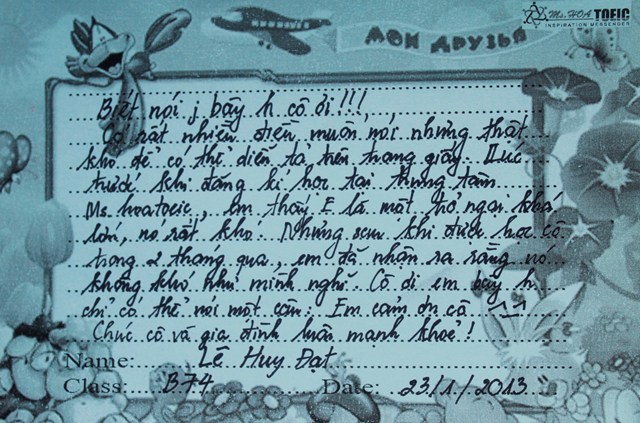 Ms. HOA TOEIC
INSPIRATION MESSENGER
МОИ ДРУЗЬЯ
Biết nói j bây h cô ơi!!!
Có rất nhiều điều muốn nói nhưng thật
khó để có thể diễn tả trên trang giấy. Lúc
trước khi đăng kí học tại trung tâm
Ms. hoatoeic, em thấy E là một trở ngại khá
lớn, nó rất khó. Nhưng sau khi được học cô
trong 2 tháng qua, em đã nhận ra rằng nó
không khó như mình nghĩ. Cô ơi em bây h
chỉ có thể nói một câu: Em cảm ơn cô ^_^
Chúc cô và gia đình luôn mạnh khoẻ!
Name: Lê Huy Đạt
Class: B74 Date: 23/1/2013